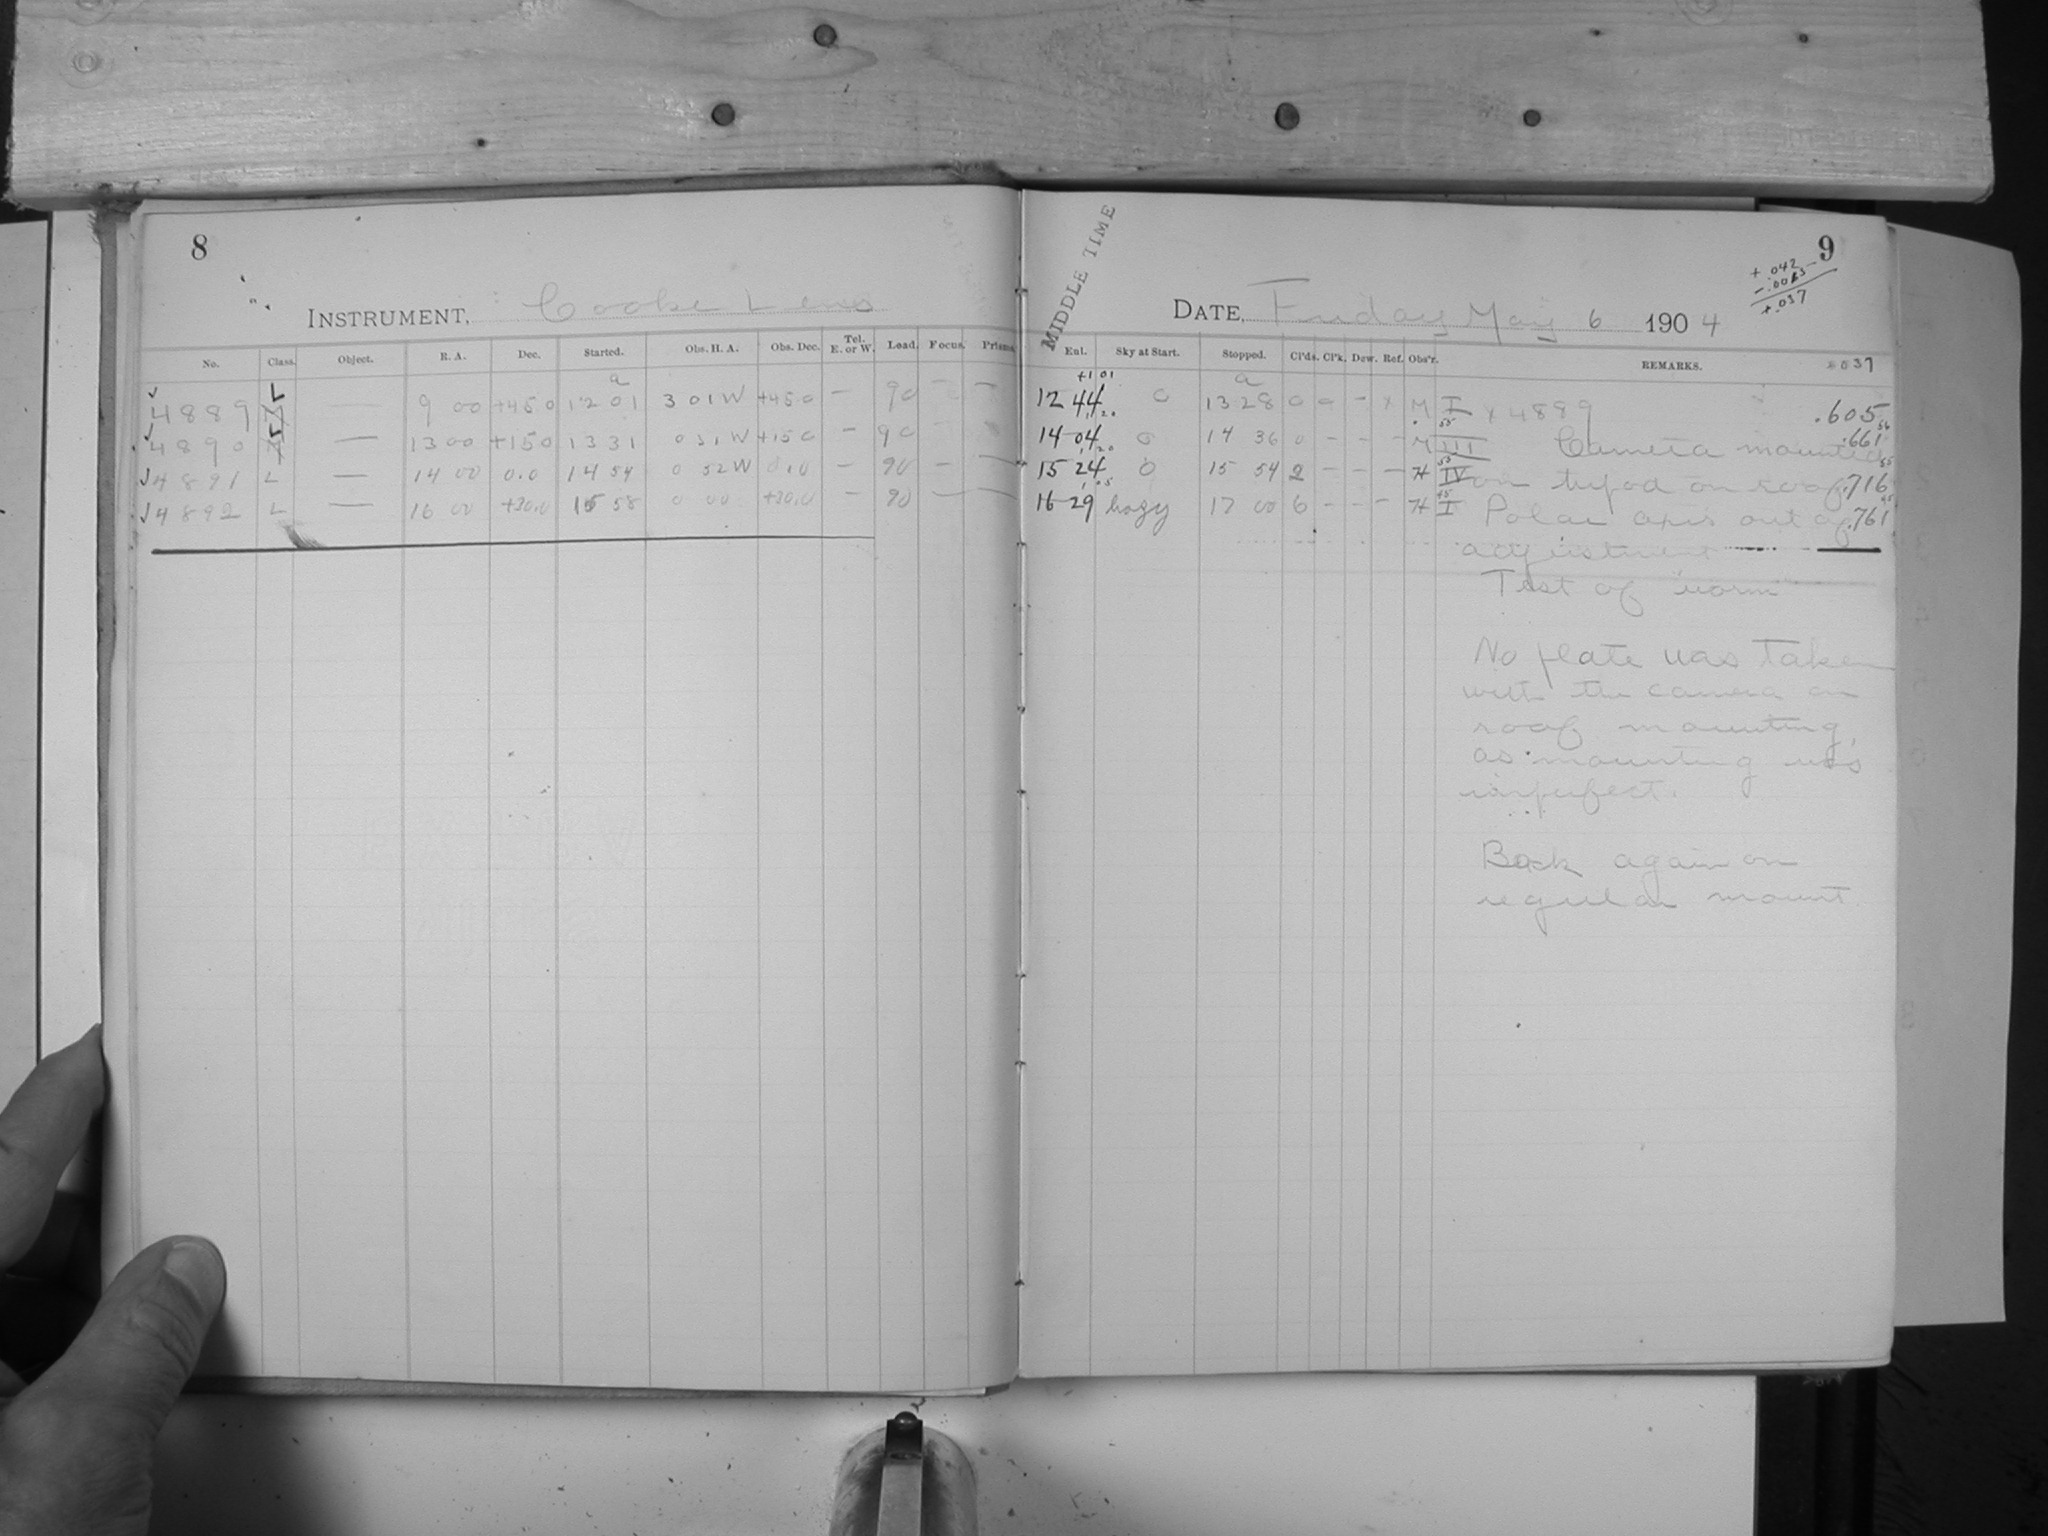 8
INSTRUMENT, Cooke Lens
No. Class. Object. R. A. Dec. Started. Obs. H. A. Obs. Dec. Tel. E. or W. Load. Focus. Prisms.
a
√ 4889 L — 9 00 +45.0 12 01 3 01 W +45.0 — 90 — —
√ 4890 L — 13 00 +15.0 13 31 0 31 W +15.0 — 90 — —
√ 4891 L — 14 00 0.0 14 54 0 52 W 0.0 — 90 — —
√ 4892 L — 16 00 +30.0 15 58 0 00 +30.0 — 90 — —
9
MIDDLE TIME
DATE, Friday May 6 1904
+.042
+.037
Enl. Sky at Start. Stopped. Cl'ds. Cl'k. Dew. Ref. Obs'r. REMARKS.
.037
+1 01
a
12 44 0 13 28 0 — – x M I x 4889 .605
14 04 0 14 36 0 – – – M III Camera mounted .661
15 24 0 15 54 2 – – – H IV on tripod on roof .716
16 29 hazy 17 00 6 – – – H I Polar axis out of .761
adjustment
Test of "worm"
No plate was taken
with the camera on
roof mounting,
as mounting was
imperfect.
Back again on
regular mount.